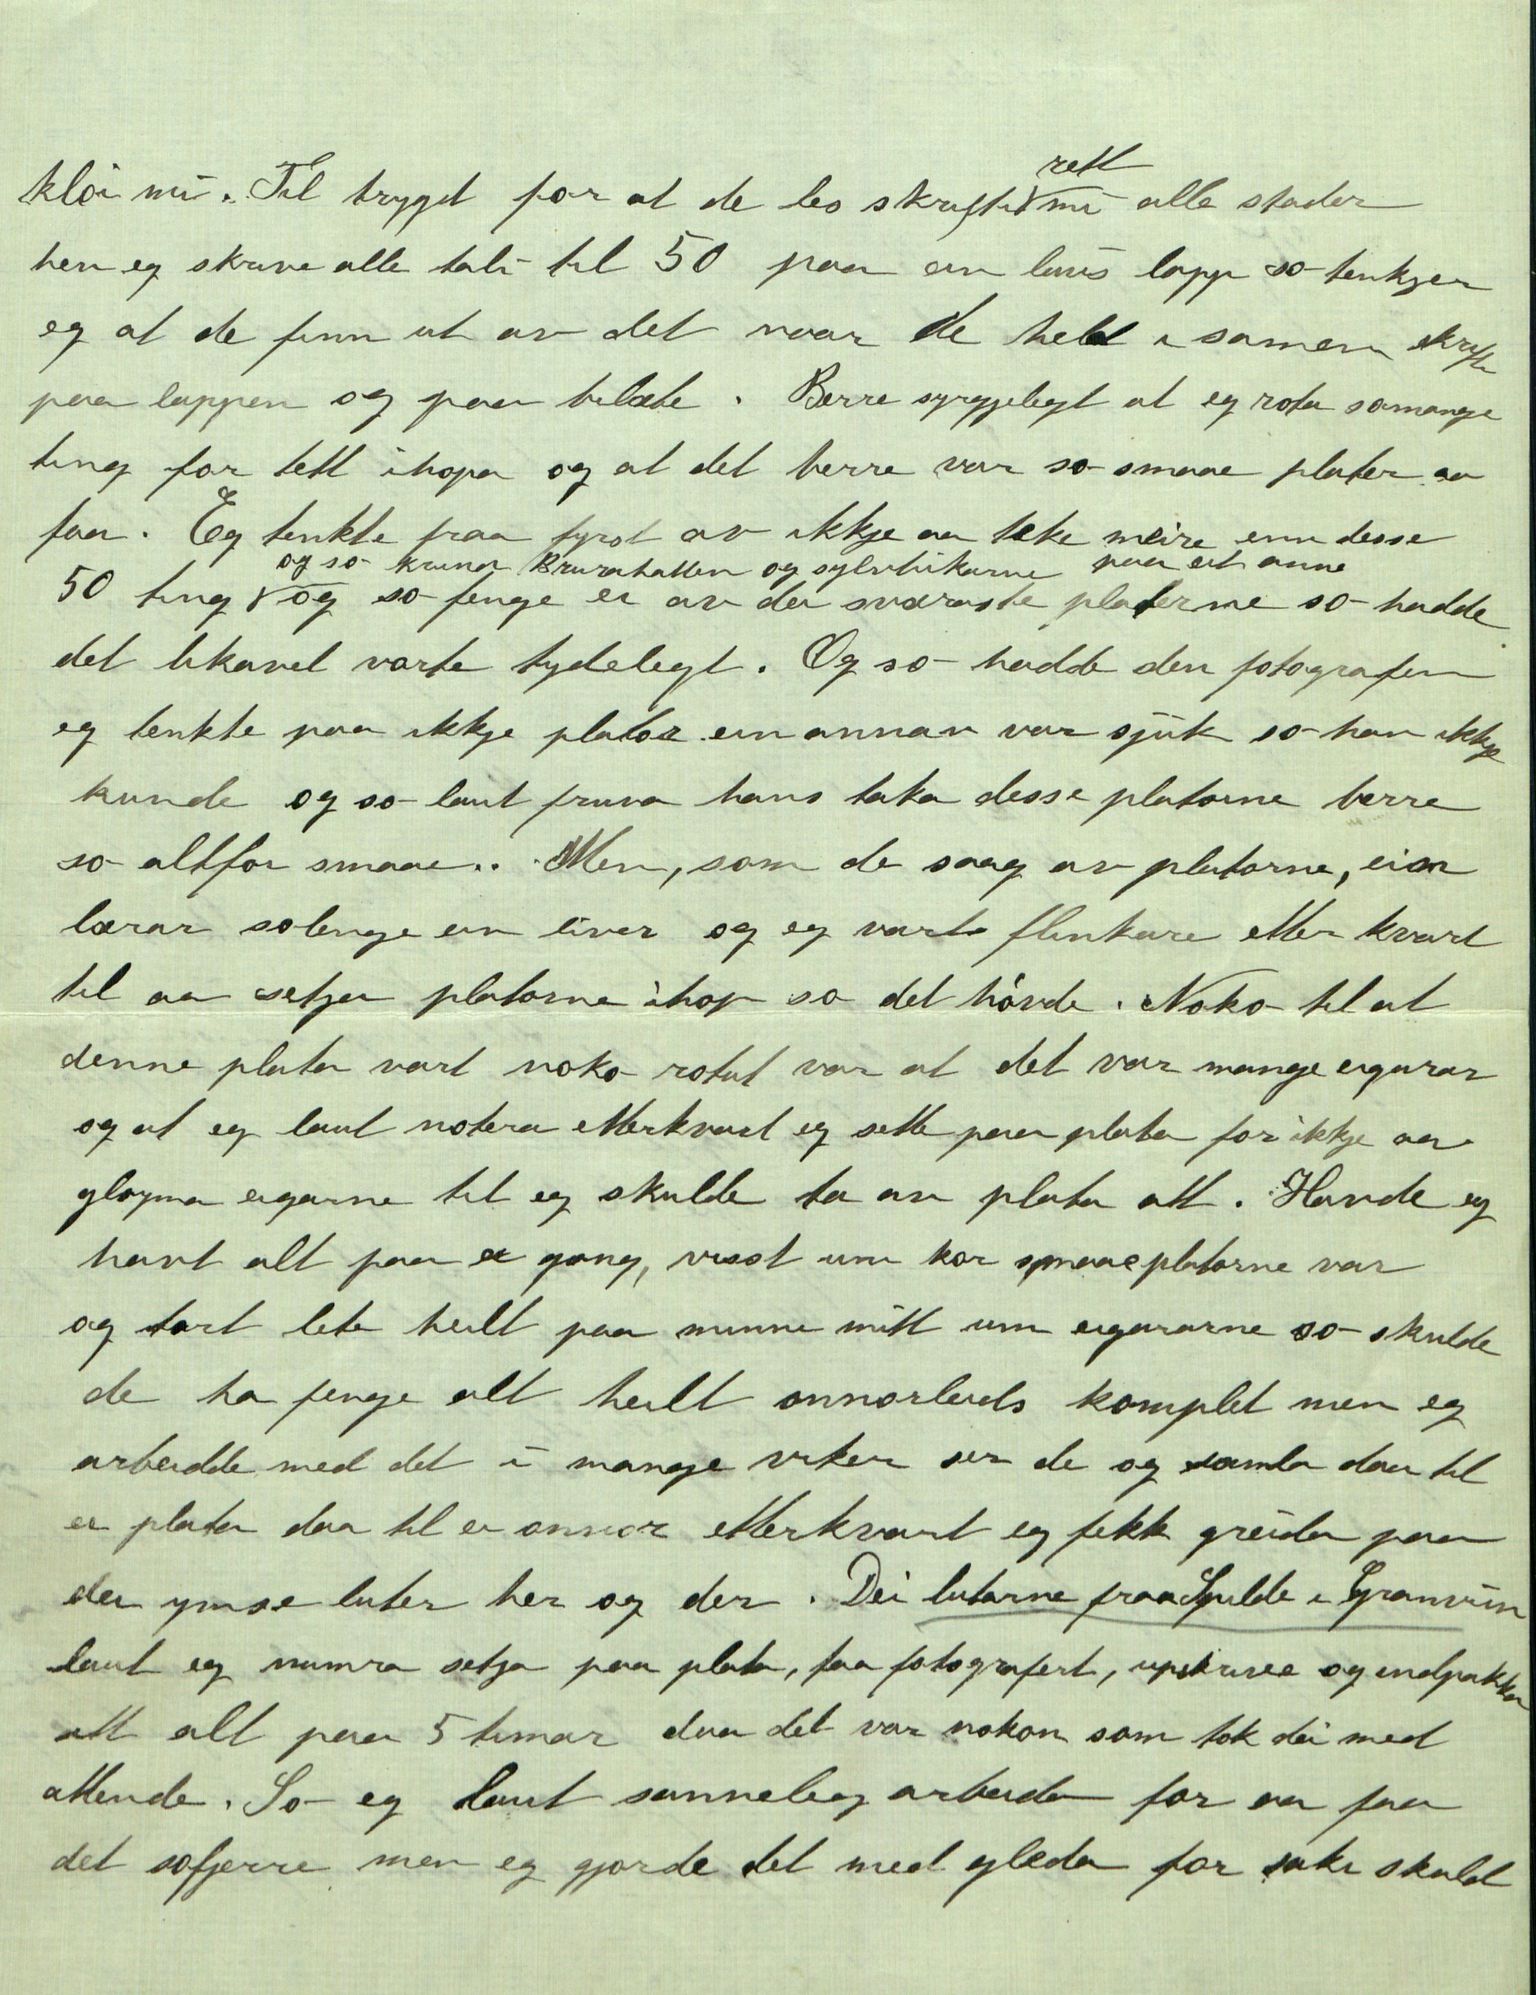 klöi mi. Til trygd for at de les skrifti √ rett mi alle stader
her eg skrive alle tali til 50 paa ein laus lapp so tenkjer
eg at de finn ut av det naar de held i samen skrifti
paa lappen og paa bilæte. Berre syrgjelegt at eg rota so mange
ting for tett ihopa og at det berre var so smaae plater aa
faa. Eg tenkte fraa fyrst av ikkje aa teke meire enn desse
og so kruna Brurahatten og sylvbikarne paa eit anna
50 ting √ og so fenge ei av dei sværaste platerne so hadde
det likavel vorte tydelegt. Og so hadde den fotografen
eg tenkte paa ikkje plator ein annan var sjuk so han ikkje
kunde og so laut fruva hans taka desse platorne berre
so altfor smaae. Men, som de saag av platorne, ein
lærar solenge ein liver og eg vart flinkare etter kvart
til aa setja platorne ihop so det hövde. Noko til at
denne plata vart noko rotut var at det var mange eigarar
og at eg laut notera etterkvart eg sette paa plata for ikkje aa
gløyma eigarne til eg skulde ta av plata att. Havde eg
havt alt paa ei gong, visst um kor smaae platorne var
og tort lite heilt paa minne mitt um eigararne so skulde
de ha fenge alt heilt annorleids komplet men eg
arbeidde med det i mange viker ser de og samla daa til
ei plata daa til ei annor etterkvart eg fekk greida paa
dei ymse luter her og der. Dei lutarne fraa Spilde i Granvin
laut eg numra setja paa plata, faa fotografert, upskrive og endpakka
att alt paa 5 timar daa det var nokon som tok dei med
attende. So eg laut sanneleg arbeida for aa faa
det sofjerre men eg gjorde det med gleda for saki skuld